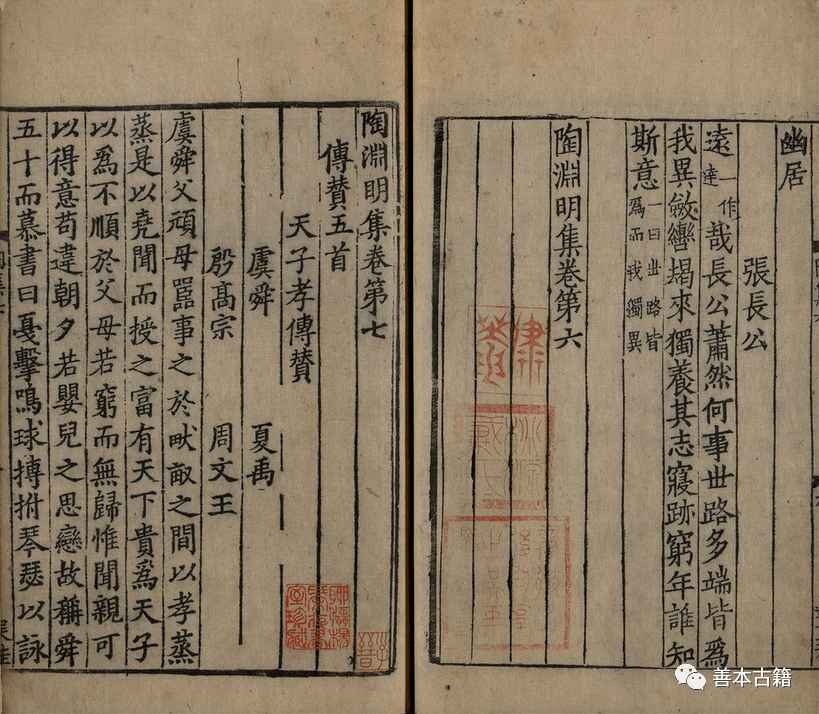 幽居
張長公
遠一作達哉長公蕭然何事世路多端皆爲
我異斂轡朅來獨養其志寢跡窮年誰知
斯意一曰世路皆爲而我獨異
陶淵明集卷第六
陶淵明集卷第七
傳賛五首
天子孝傳賛
虞舜 夏禹
殷高宗 周文王
虞舜父頑母嚚事之於畎畝之間以孝蒸
蒸是以堯聞而授之富有天下貴爲天子
以爲不順於父母若窮而無歸惟聞親可
以得意苟違朝夕若嬰兒之思戀故稱舜
五十而慕書曰戛擊鳴球搏拊琴瑟以詠
善本古籍